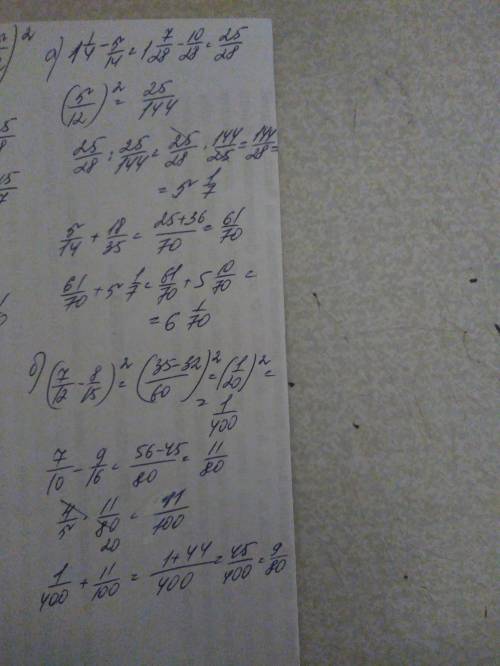 )²
а) 1 1/4 - 5/14 = 1 7/28 - 10/28 = 25/28
(5/12)² = 25/144
25/28 : 25/144 = 25/28 · 144/25 = 144/28 =
= 5 1/7
5/14 + 18/35 = (25+36)/70 = 61/70
61/70 + 5 1/7 = 61/70 + 5 10/70 =
= 6 1/70
б) (7/12 - 8/15)² = ((35-32)/60)² = (1/20)² =
= 1/400
7/10 - 9/16 = (56-45)/80 = 11/80
4/5 · 11/80 = 11/100
20
1/400 + 11/100 = (1+44)/400 = 45/400 = 9/80